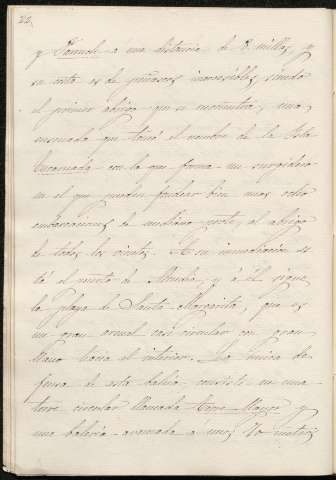 22.
y Formentor á una distancia de 8 millas, y
su costa es de peñascos inaccesibles, siendo
el primer abrigo que se encuentra, una
ensenada que tomó el nombre de la Isla
Encarnada con la que forma un surgidero
en el que pueden fondear bien unas ocho
embarcaciones de mediano porte, al abrigo
de todos los vientos. A su inmediacion es
tá el puerto de Alcudia, y á él sigue
la playa de Santa Margarita, que es
un gran arenal casi circular con gran
llano hacia el interior. La única de
fensa de esta bahia consiste en una
torre circular llamada Torre Mayor y
una bateria avanzada á unos 70 metros